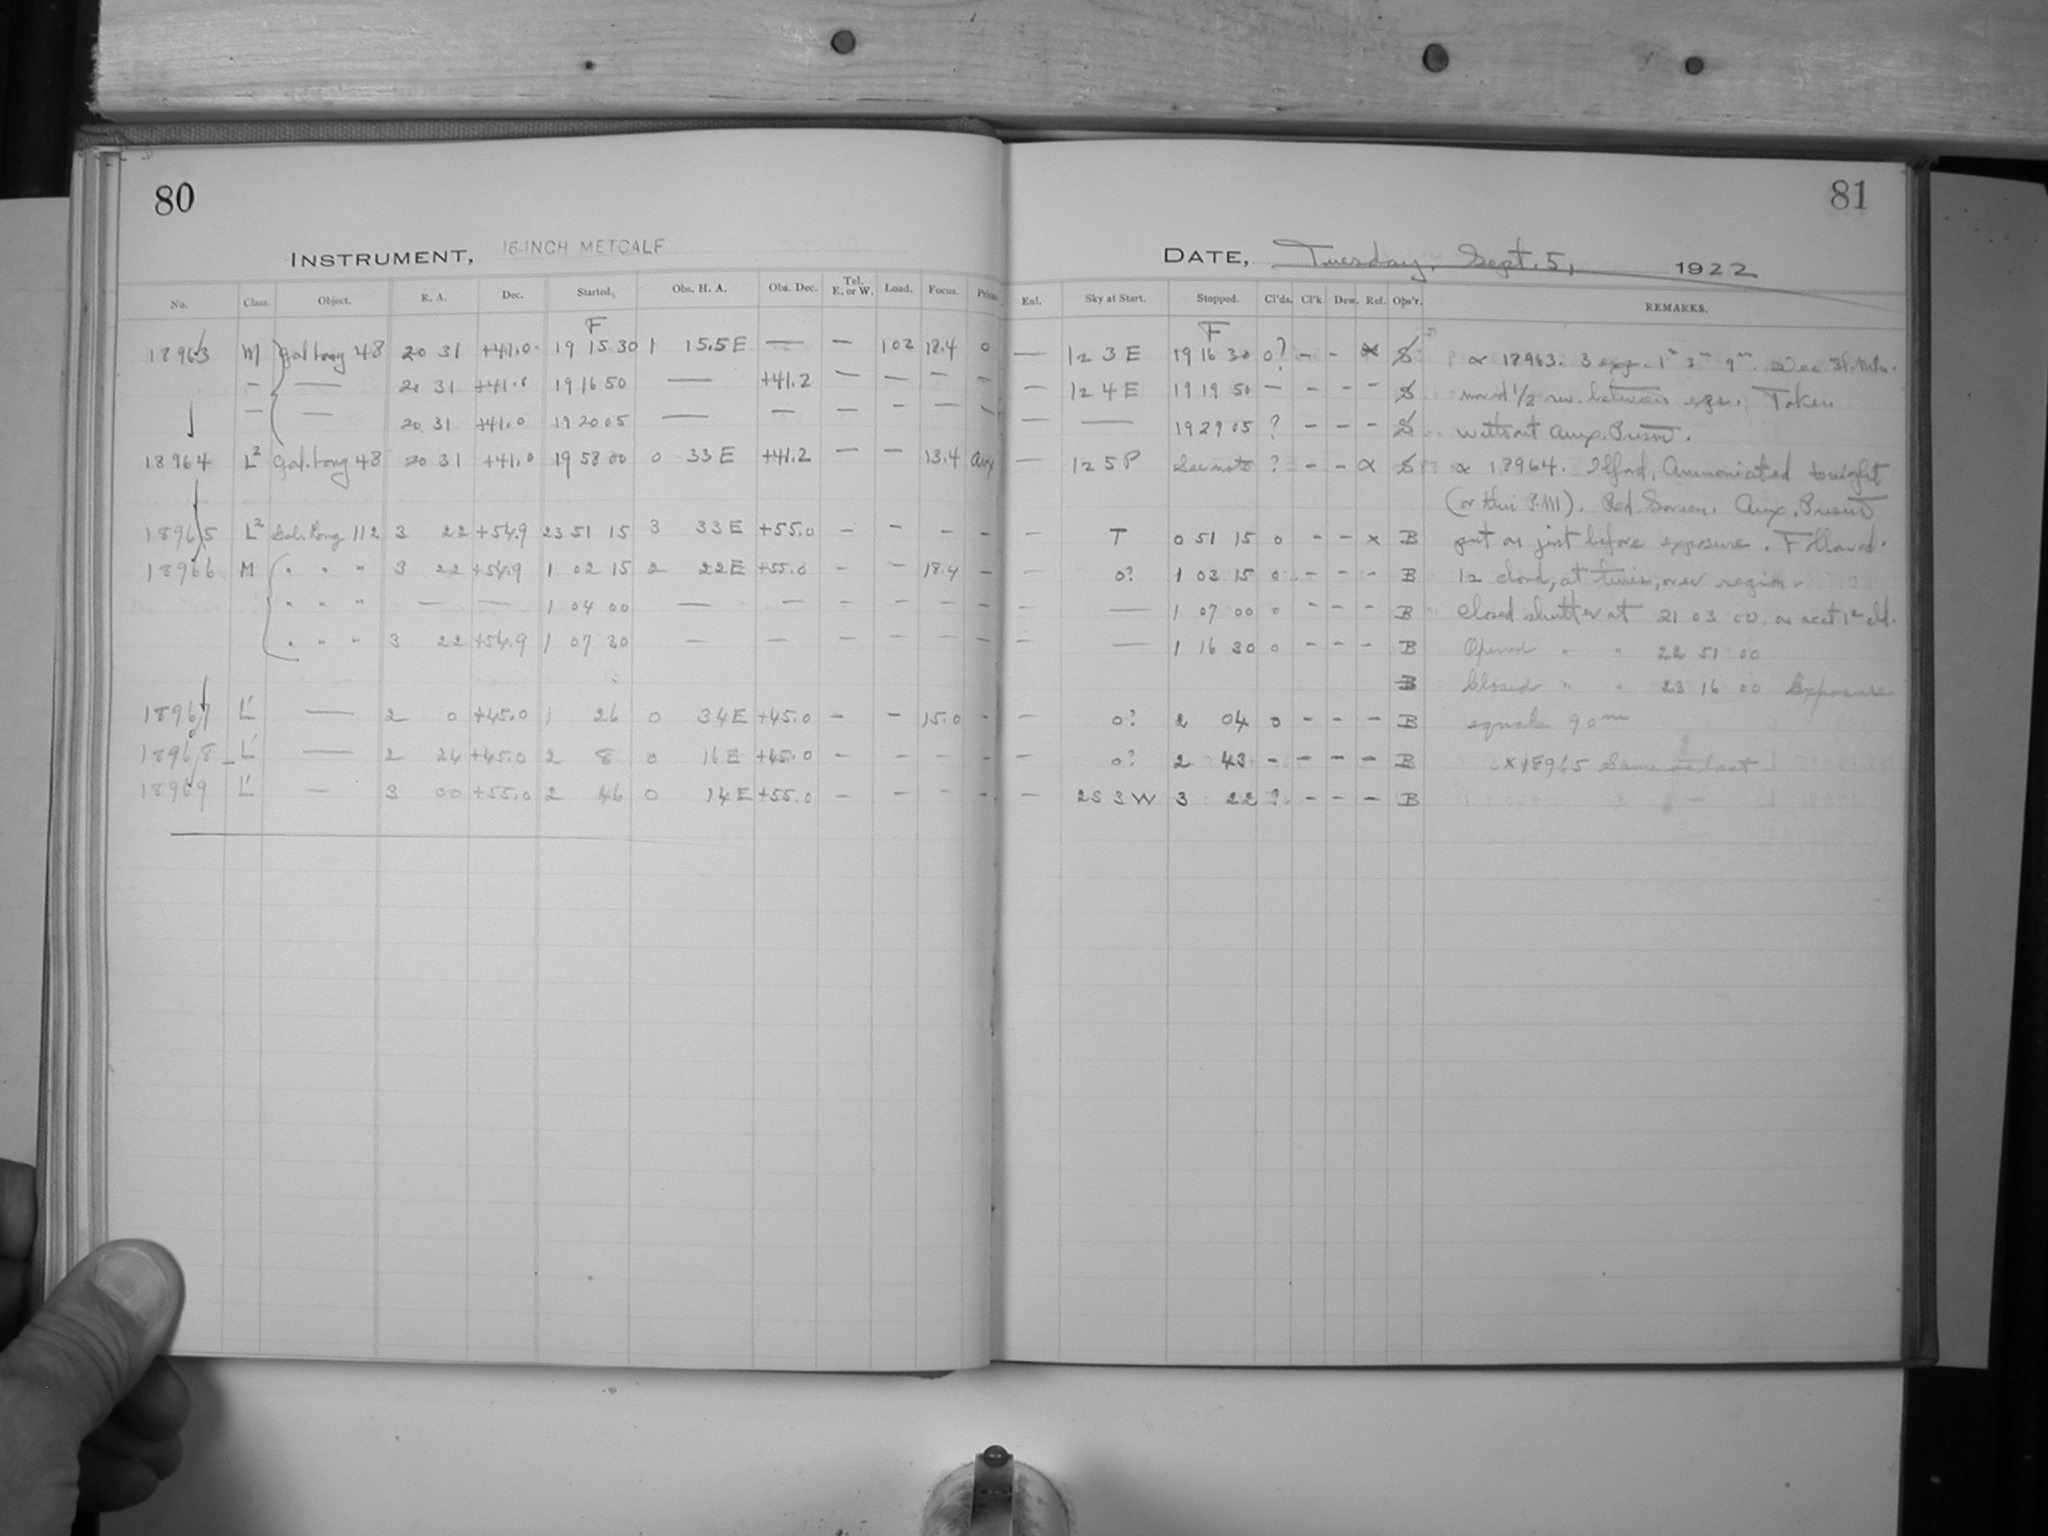 80
INSTRUMENT, 16-INCH METCALF
No. Class. Object. R. A. Dec. Started. Obs. H. A. Obs. Dec. Tel. E. or W. Load. Focus. Prism
F
18963 M Gal Long 48 20 31 +41.0 19 15 30 1 15.5 E — — 102 18.4 0
— — 20 31 +41.0 19 16 50 — +41.2 — — — —
— — 20 31 +41.0 19 20 05 — — — — — —
18964 L2 Gal. Long 48 20 31 +41.0 19 58 00 0 33 E +41.2 — — 13.4 Aux
18965 L2 Gal. Long 112 3 22 +54.9 23 51 15 3 33 E +55.0 - - - -
18966 M " " " 3 22 +54.9 1 02 15 2 22 E +55.0 - - 18.4 -
" " " — — 1 04 00 — — - - - -
" " " 3 22 +54.9 1 07 30 — — - - - -
18967 L' — 2 0 +45.0 1 26 0 34 E +45.0 - - 15.0 -
18968 L' — 2 24 +45.0 2 8 0 16 E +45.0 - - - -
18969 L' — 3 00 +55.0 2 46 0 14 E +55.0 - - - -
81
DATE, Tuesday, Sept. 5, 1922
Enl. Sky at Start. Stopped. Cl'ds. Cl'k Dew. Ref. Obs'r. REMARKS.
F
— 12 3 E 19 16 30 0? - - x S α 18963. 3 exp. 1m 3m 9m.
— 12 4 E 19 19 50 - - - - S mov'd 1/2 rev. between exps. Taken
— — 19 29 05 ? - - - S without Aux. Prism.
— 12 5 P See note ? - - α S α 18964. Ilford, Ammoniated tonight
(or this P.M). Red Screen. Aux. Prism
— T 0 51 15 0 - - x B put on just before exposure. Followed.
— 0? 1 03 15 0 - - - B 12 cloud, at times, over region.
— — 1 07 00 0 - - - B Closed shutter at 21 03 00 on acct 12 cld.
— — 1 16 30 0 - - - B Opened " " 22 51 00
B Closed " " 23 16 00 Exposure
— 0? 2 04 0 - - - B equals 90m
— 0? 2 43 - - - - B x 18965 Same as last
— 2S 3 W 3 22 ? - - - B